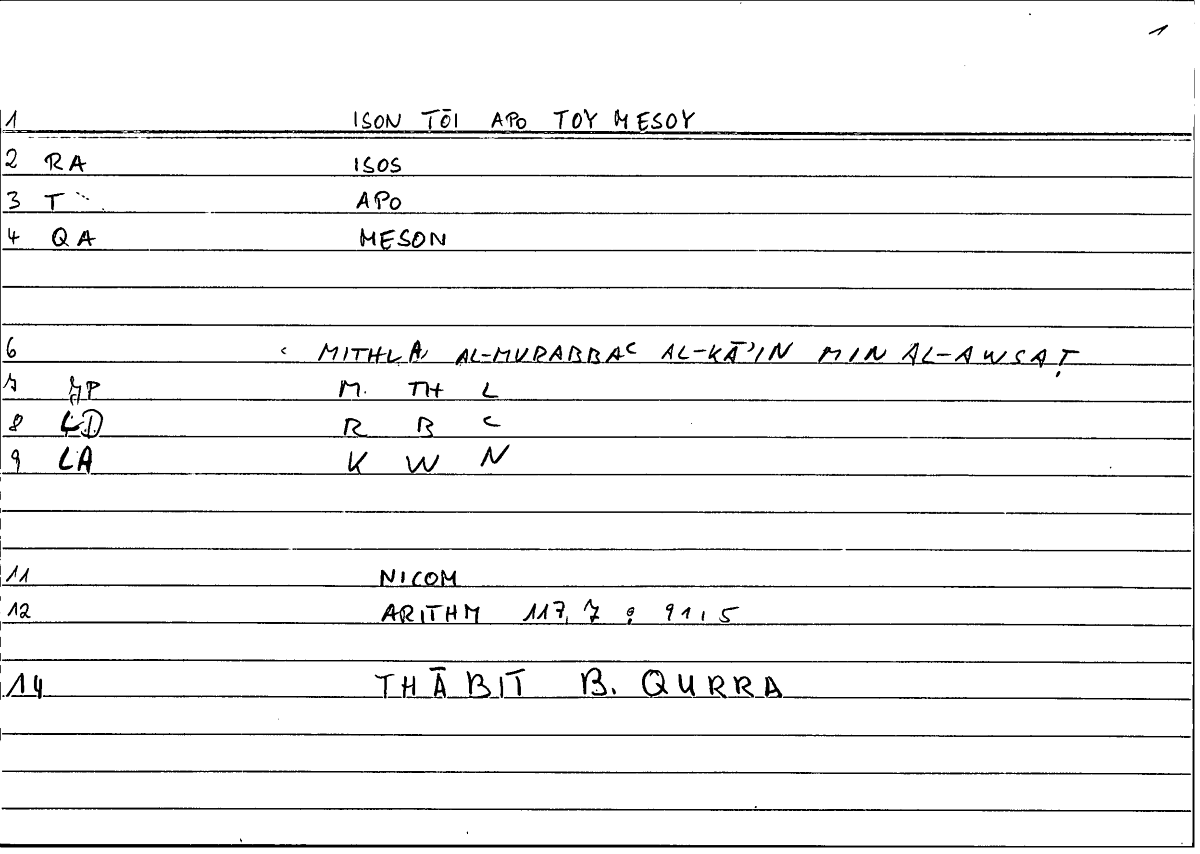 1
1 ISON TŌI APO TOY MESOY
2 RA ISOS
3 T APO
4 QA MESON
6 ʿ MITHLA, AL-MURABBAʿ AL-KĀʾIN MIN AL-AWSAṬ
7 M. TH L
8 LD R B ʿ
9 LA K W N
11 NICOM
12 ARITHM 117,7 : 91,5
14 THĀBIT B. QURRA